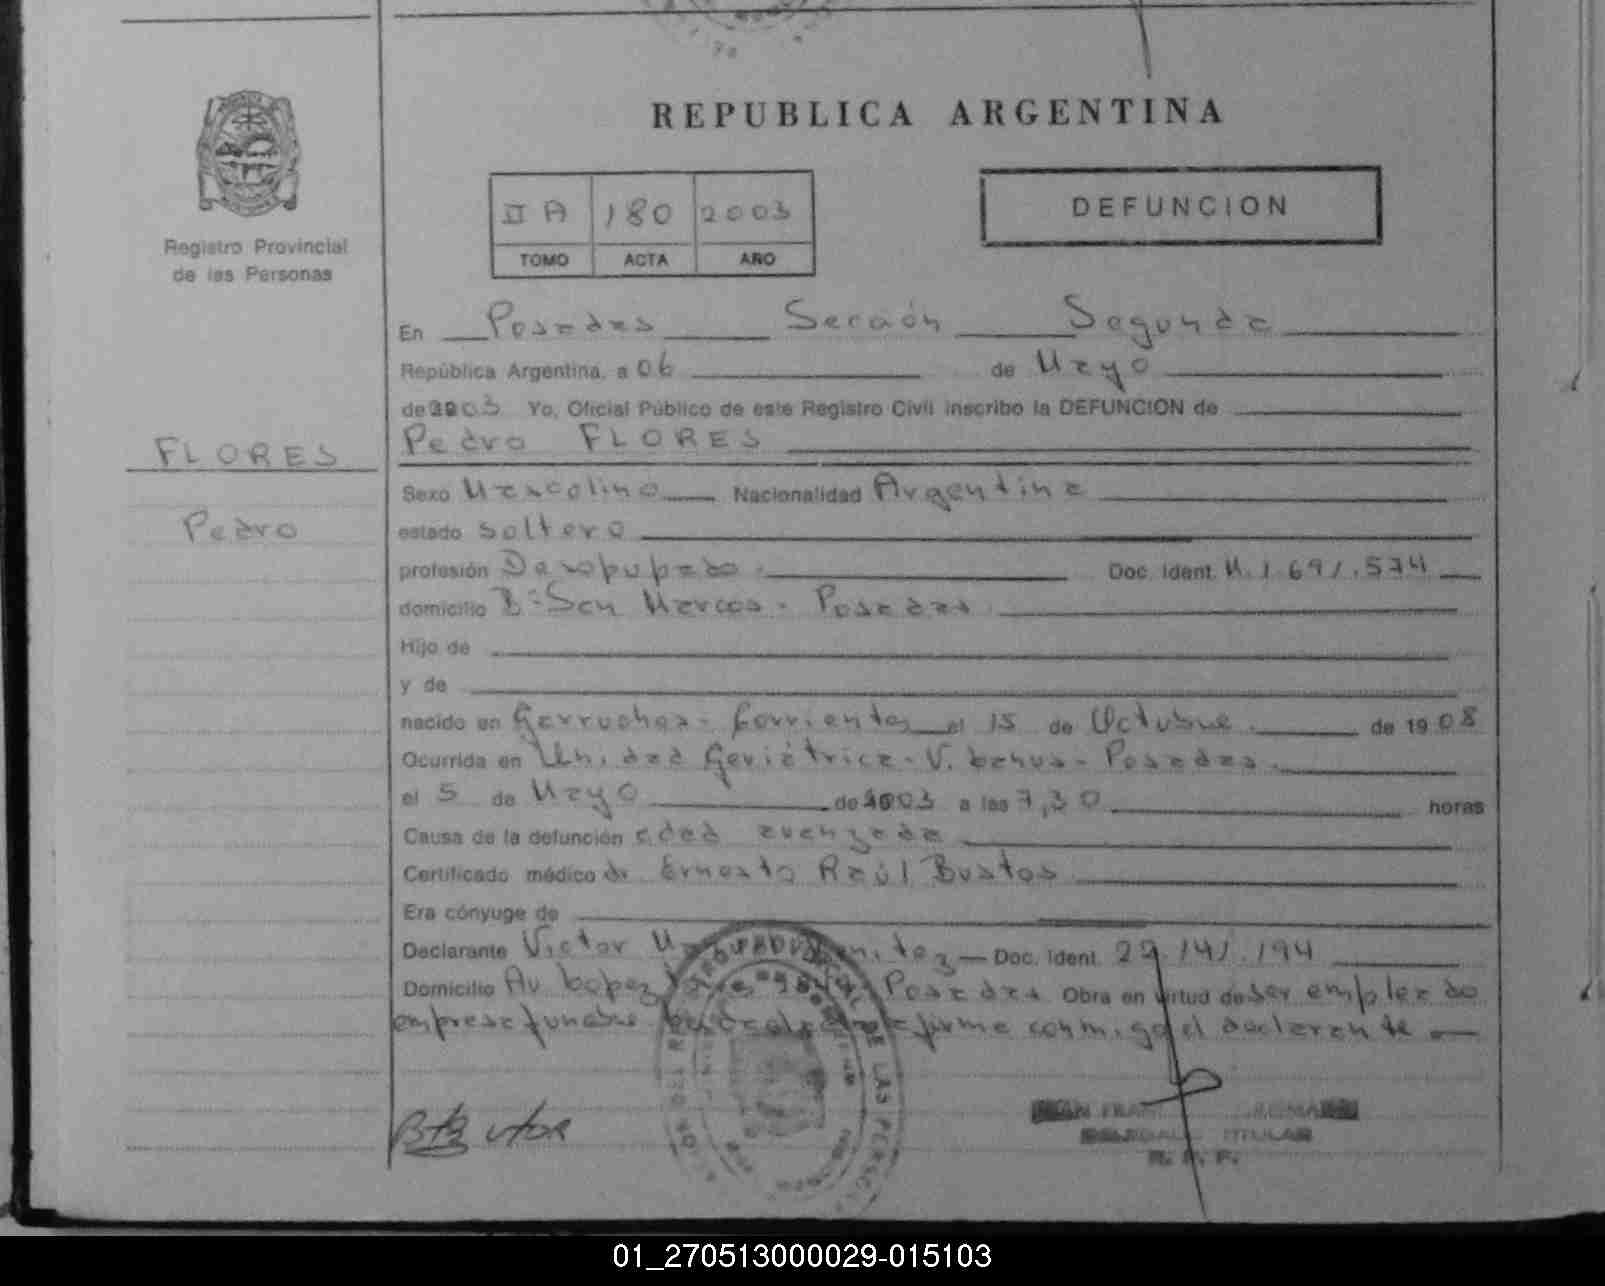 REPUBLICA ARGENTINA
Registro Provincial
de las Personas
II A 180 2003
TOMO ACTA AÑO
DEFUNCION
En Posadas Sección Segunda
República Argentina, a 06 de Mayo
de 2003 Yo, Oficial Público de este Registro Civil inscribo la DEFUNCION de
Pedro FLORES
FLORES
Pedro
Sexo Masculino Nacionalidad Argentina
estado soltero
profesión Doc. Ident. M.1.691.574
domicilio Bº San Marcos - Posadas
Hijo de
y de
nacido en Garruchos - Corrientes el 15 de Octubre de 1908
Ocurrida en Unidad Geriátrica - Posadas
el 5 de Mayo de 2003 a las 7,30 horas
Causa de la defunción edad avanzada
Certificado médico dr Ernesto Raúl Bustos
Era cónyuge de
Declarante Victor Doc. Ident. 29.141.194
Domicilio Av Lopez Posadas Obra en virtud de ser empleado
empresa funebre firma conmigo el declarante
DE LAS PERSO
TITULAR
R. P. P.
01_270513000029-015103